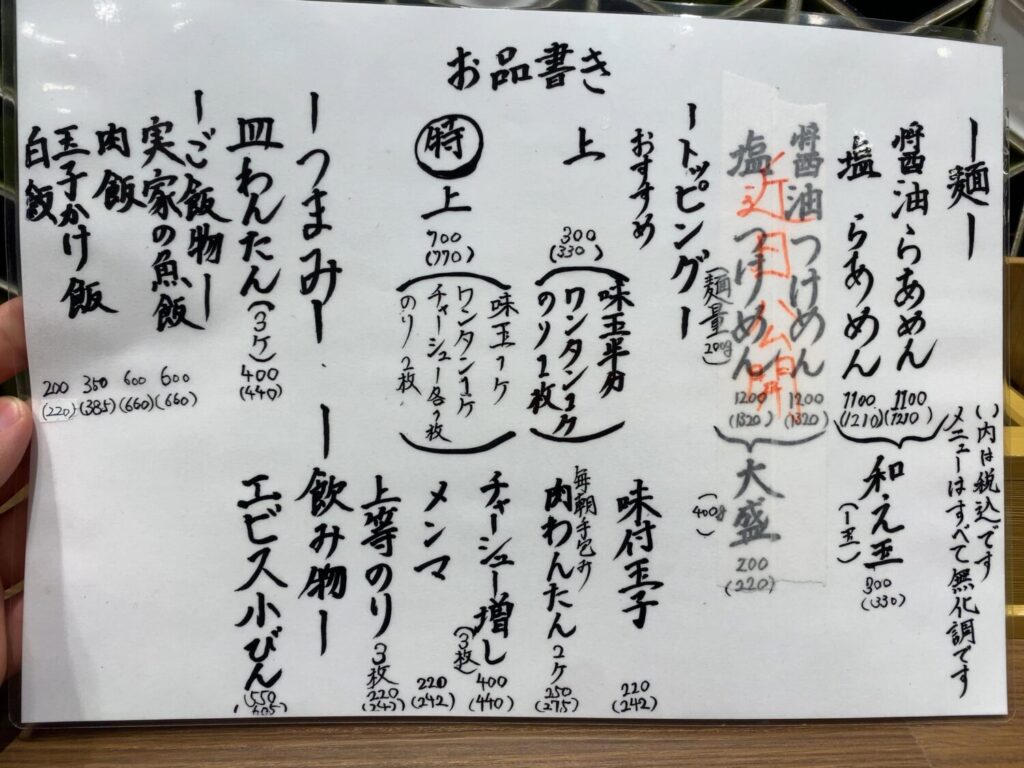 お品書き
ー麺ー
醤油らあめん 1100 (1210)
塩 らあめん 1100 (1210)
和え玉 (一玉) 300 (330)
( )内は税込です
メニューはすべて無化調です
醤油つけめん 1200 (1320)
塩 つけめん 1200 (1320)
近日公開
(麺量200g)
大盛 200 (220)
(400g)
ートッピングー
おすすめ
上 300 (330)
味玉半分
ワンタン1ケ
のり1枚
時 上 700 (770)
味玉1ケ
ワンタン1ケ
チャーシュー各1枚
のり2枚
味付玉子 220 (242)
毎朝手包み
肉わんたん 2ケ 250 (275)
チャーシュー増し (3枚) 400 (440)
メンマ 220 (242)
上等のり 3枚 220 (242)
ーつまみー
皿わんたん (3ケ) 400 (440)
ー飲み物ー
エビス小びん 550 (605)
ーご飯物ー
実家の魚飯 600 (660)
肉飯 600 (660)
玉子かけ飯 350 (385)
白飯 200 (220)